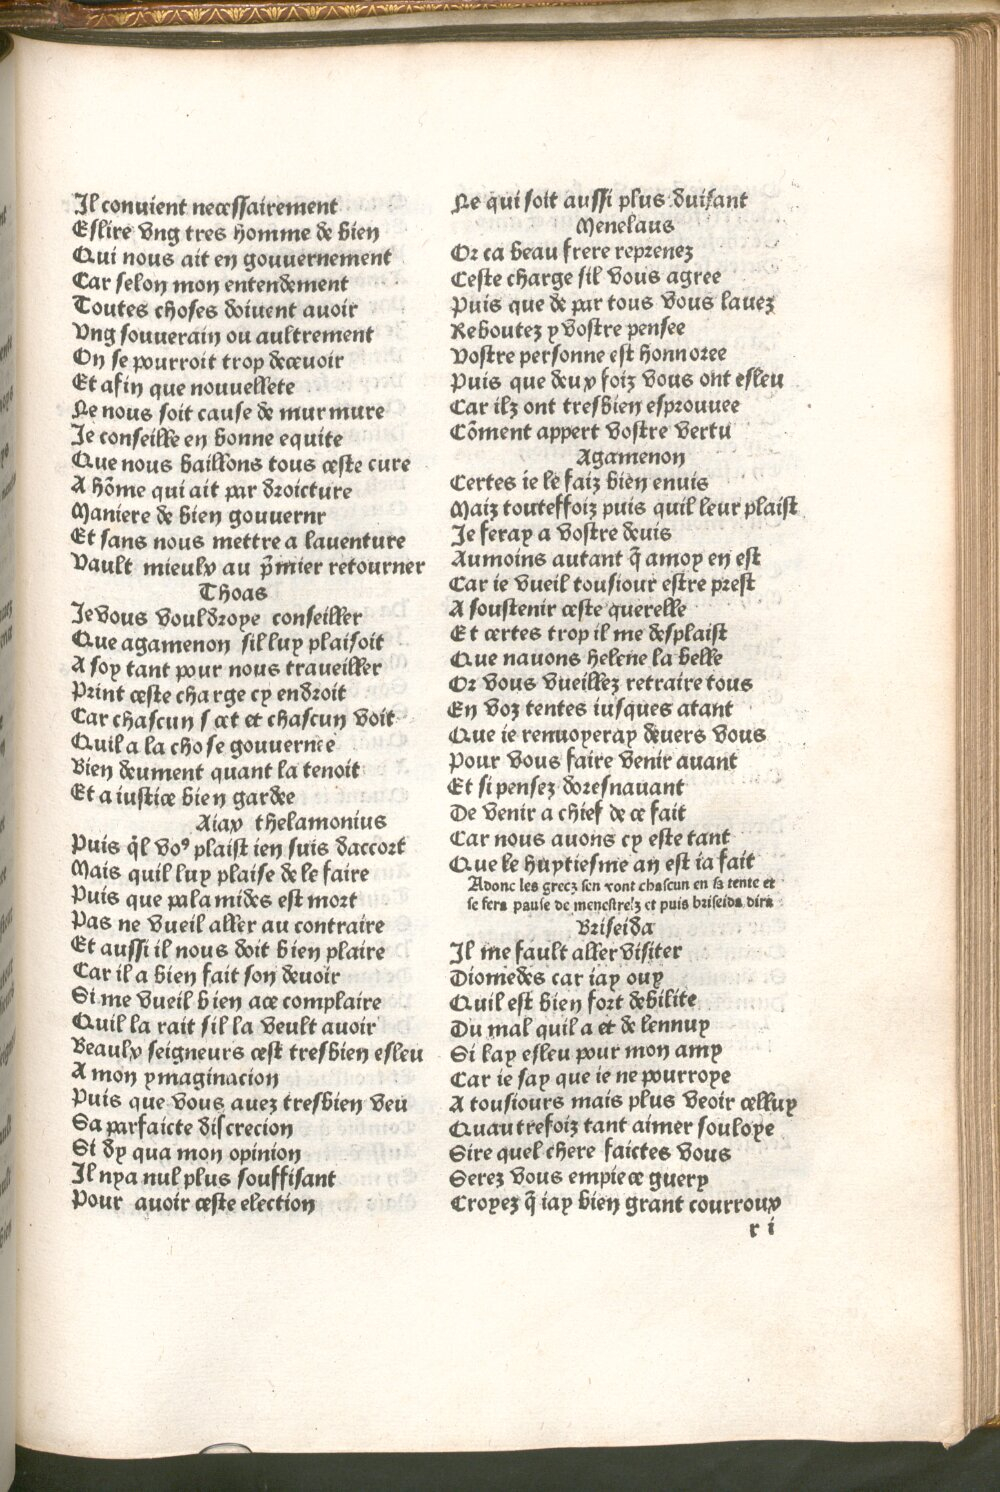 Il conuient necessairement
Eslire vng tres homme de bien
Qui nous ait en gouuernement
Car selon mon entendement
Toutes choses doiuent auoir
Vng souuerain ou aultrement
On se pourroit trop deceuoir
Et afin que nouuellete
Ne nous soit cause de mur mure
Je conseille en bonne equite
Que nous baillons tous ceste cure
A hõme qui ait par droicture
Maniere de bien gouuernr
Et sans nous mettre a lauenture
Vault mieulx au p̃mier retourner
Thoas
Je vous vouldroye conseiller
Que agamenon sil luy plaisoit
A soy tant pour nous traueiller
Print ceste charge cy endroit
Car chascun scet et chascun voit
Quil a la chose gouuernee
Bien deument quant la tenoit
Et a iustice bien gardee
Aiax thelamonius
Puis q̃l voꝰ plaist ien suis daccort
Mais quil luy plaise de le faire
Puis que palamides est mort
Pas ne vueil aller au contraire
Et aussi il nous doit bien plaire
Car il a bien fait son deuoir
Si me vueil bien ace complaire
Quil la rait sil la veult auoir
Beaulx seigneurs cest tresbien esleu
A mon ymaginacion
Puis que vous auez tresbien veu
Sa parfaicte discrecion
Si dy qua mon opinion
Il nya nul plus souffisant
Pour auoir ceste election
Ne qui soit aussi plus duisant
Menelaus
Or ca beau frere reprenez
Ceste charge sil vous agree
Puis que de par tous vous lauez
Reboutez y vostre pensee
Vostre personne est honnoree
Puis que deux foiz vous ont esleu
Car ilz ont tresbien esprouuee
Cõment appert vostre vertu
Agamenon
Certes ie le faiz bien enuis
Maiz touteffoiz puis quil leur plaist
Je feray a vostre deuis
Aumoins autant q̃ amoy en est
Car ie vueil tousiour estre prest
A soustenir ceste querelle
Et certes trop il me desplaist
Que nauons helene la belle
Or vous vueillez retraire tous
En voz tentes iusques atant
Que ie renuoyeray deuers vous
Pour vous faire venir auant
Et si pensez doresnauant
De venir a chief de ce fait
Car nous auons cy este tant
Que le huytiesme an est ia fait
Adonc les grecz sen vont chascun en sa tente et
se fera pause de menestrelz et puis briseida dira
Briseida
Il me fault aller visiter
Diomedes car iay ouy
Quil est bien fort debilite
Du mal quil a et de lennuy
Si lay esleu pour mon amy
Car ie say que ie ne pourroye
A tousiours mais plus veoir celluy
Quautrefoiz tant aimer souloye
Sire quel chere faictes vous
Serez vous empiece guery
Croyez q̃ iay bien grant courroux
r i